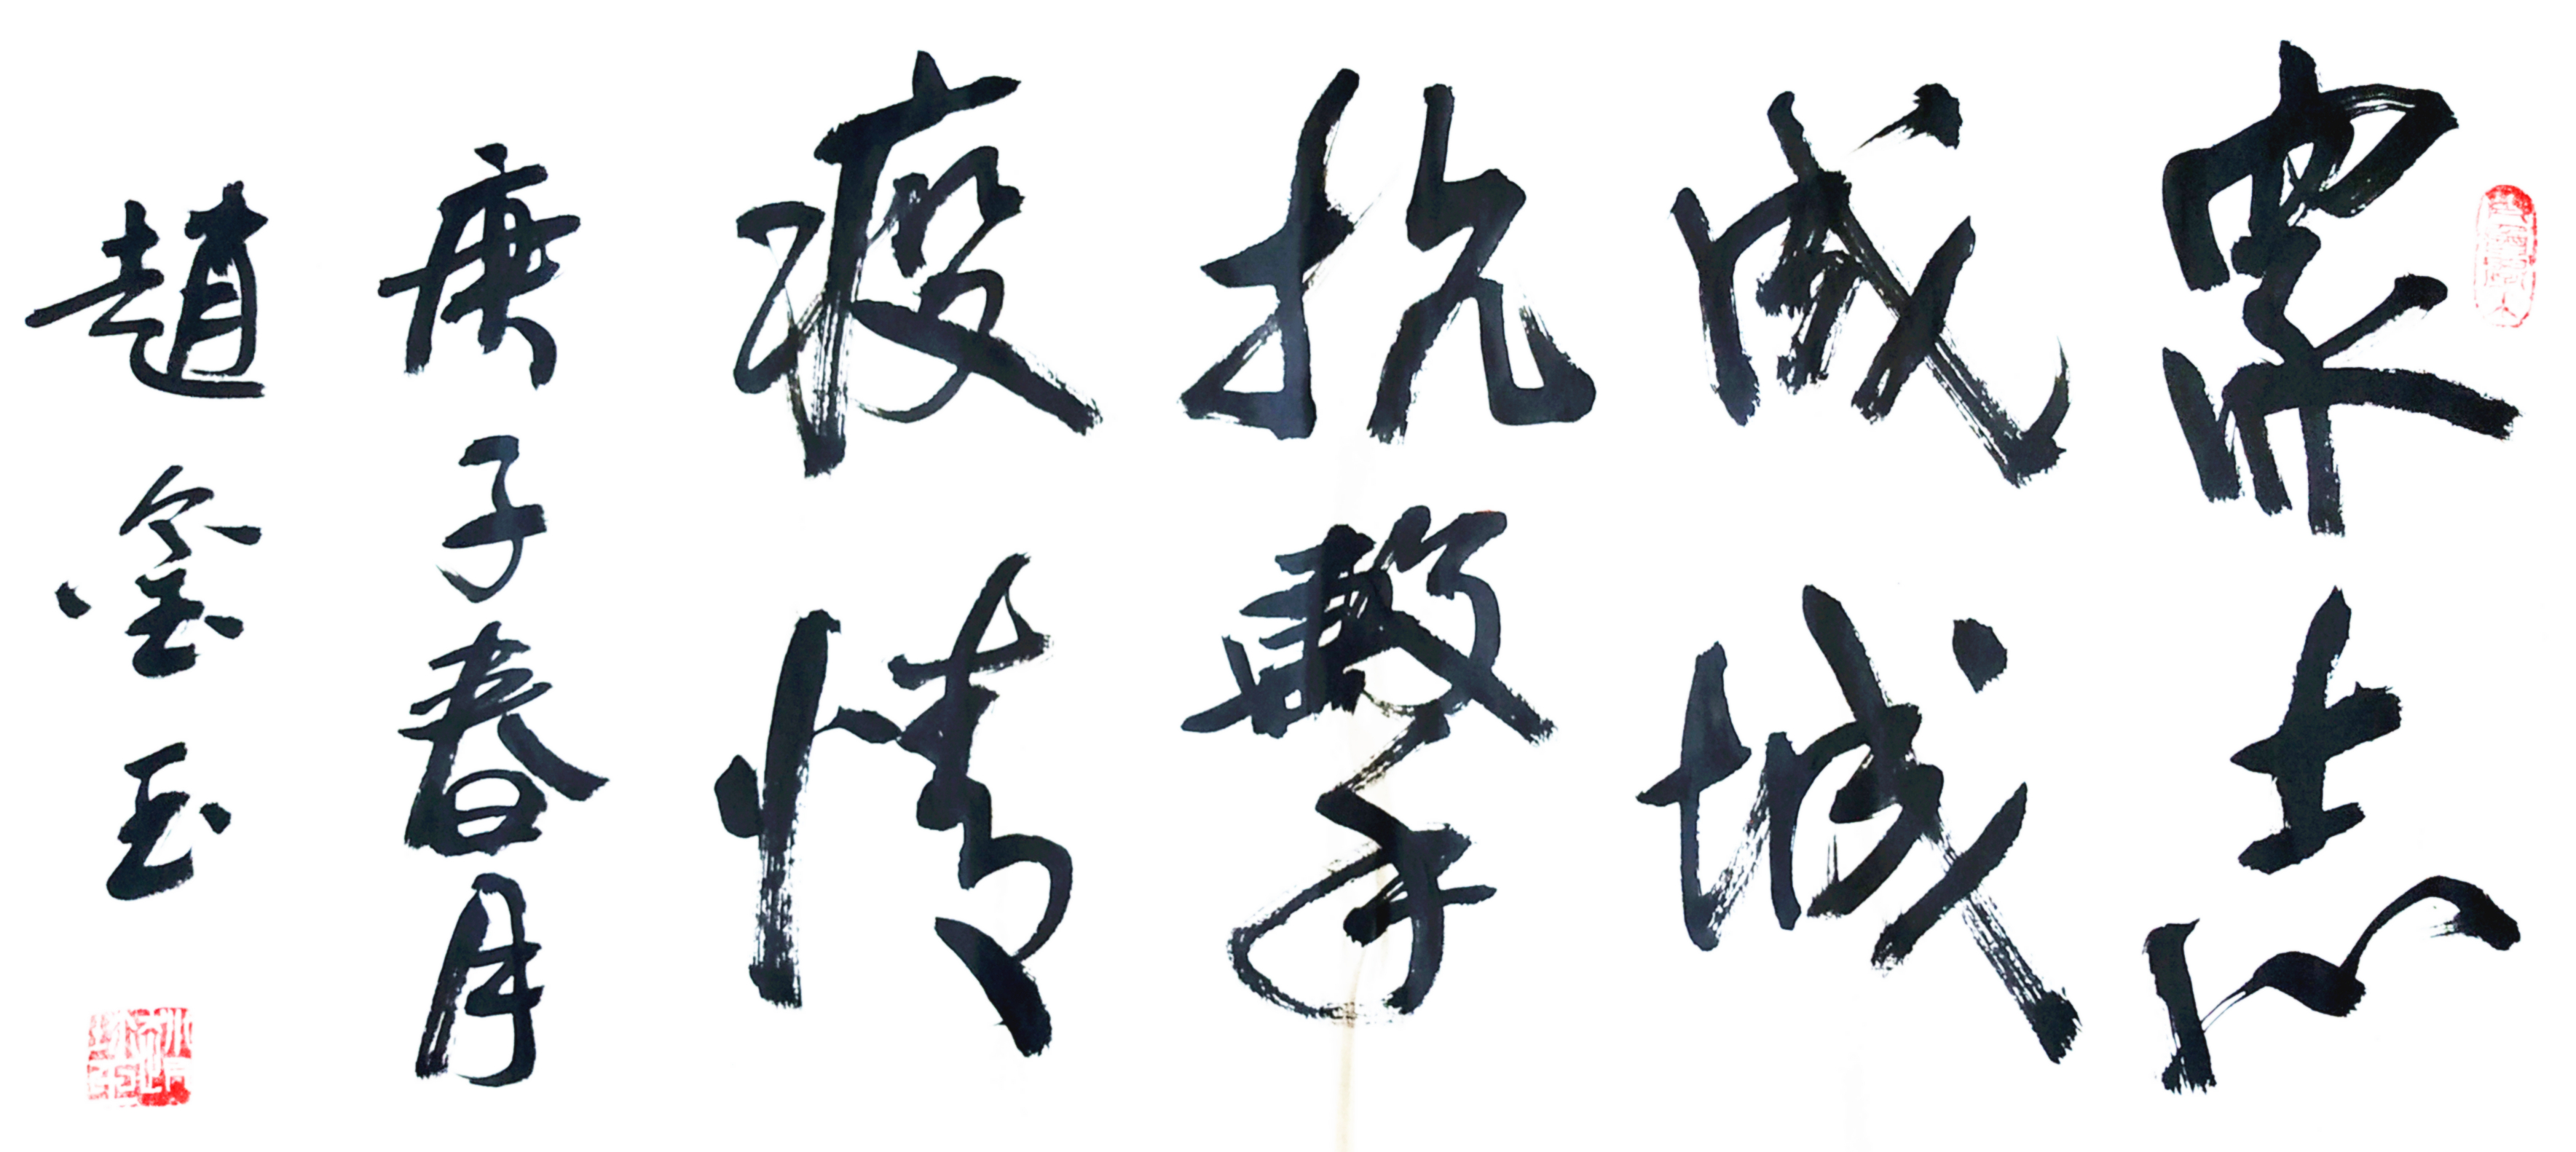 眾志
成城
抗擊
疫情
庚子春月
趙金玉